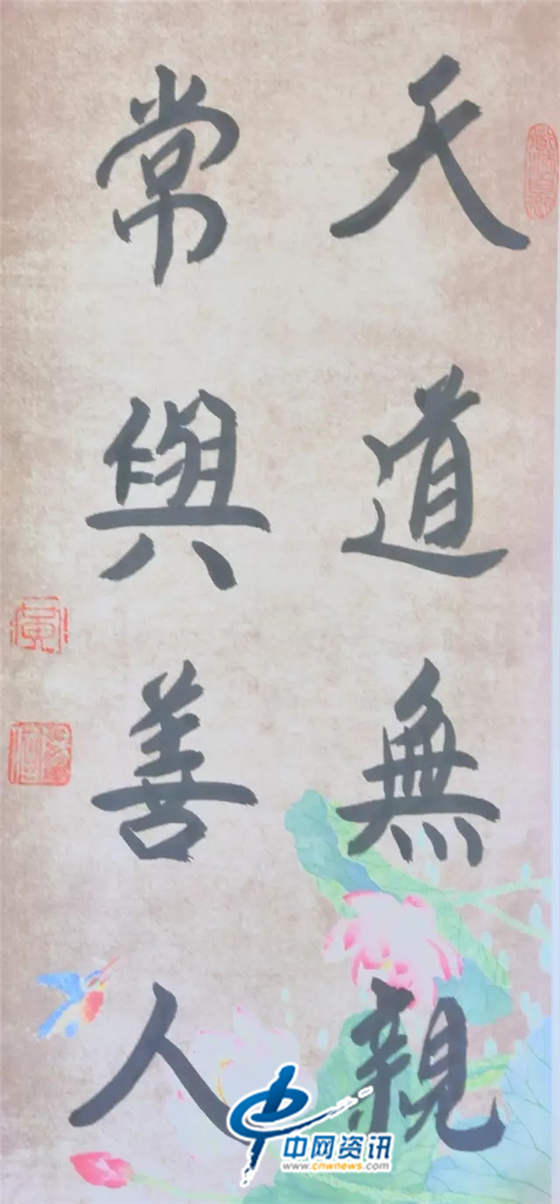 天道無親
常與善人
中网资讯
www.cnwnews.com